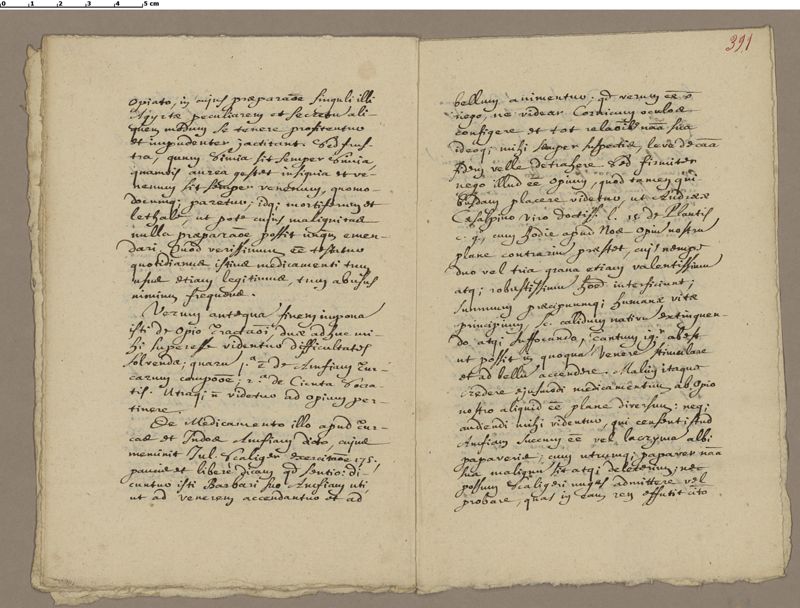 0 1 2 3 4 5 cm
391
opiato, in cujus præparaõe singuli illi
Agyrtæ peculiarem et secretum ali-
quem modum se tenere profitentur
et impudenter jactitant. Sed frus-
tra, quum Simia sit semper Simia
quamvis aurea gestet insignia et ve-
nenum sit semper venenum, quomo-
documq; paretur, idq; mortiferum et
lethale, ut pote cujus malignitas
nulla præparaõe possit unqm emen-
dari. Quod verissimum eẽ testatur
quotidianus istius medicamenti tum
usus etiam legitimus, tum abusus
nimium frequens.
Verum antequa finem imponã
isti de Opio Tractaõi, duæ adhuc mi-
hi superesse videntur difficultates
solvendæ; quaru 1.a ẽ de Amfiam Tur-
carum compoõe; 2.a de Cicuta Socra-
tis. Utraq; n̄ videtur ad opium per-
tinere.
De Medicamento illo apud Tur-
cas et Indos Amfiam dicto, cujus
meminit Jul. Scaliger exercitaõe 175.
paucis et liberè dicam qd sentio: di-
cuntur isti Barbari suo Amfiam uti
ut ad venerem accendantur et ad
bellum animentur. qd verum eẽ n̄
nego, ne videar Cornicum oculos
configere et tot relaõib nãa sua
ideoq; mihi semper suspectis, leve
fidem velle detrahere. Sed firmiter
nego illud eẽ opium, quod tamen qui-
busdam placere videtur, ut Andreæ
Cæsalpino viro doctiss. l. 15 de Plantis
c. 9, cum hodie apud Nos Opiu nostrũ
plane contrariu præstet, cujs nempe
duo vel tria grana etiam valentissimũ
atq; robustissimum hõem interficiunt;
summum præcipuumq; humanæ vitæ
principium sc. calidum nativu extinguen-
do atq; suffocando, tantum igr abest
ut possit in quoqua Venere stimulare
et ad bella accendere. Malim itaque
credere ejusmodi medicamentum ab Opio
nostro aliquid eẽ plane diversum: neq;
audiendi mihi videntur, qui censent istud
Amfiam succum eẽ vel lacryma albi
papaveris, cum utrumq; papaver nãa
sua malignu sit atq; deleterium; nec
possum Scaligeri nugas admittere vel
probare, quas in eam rem effutit